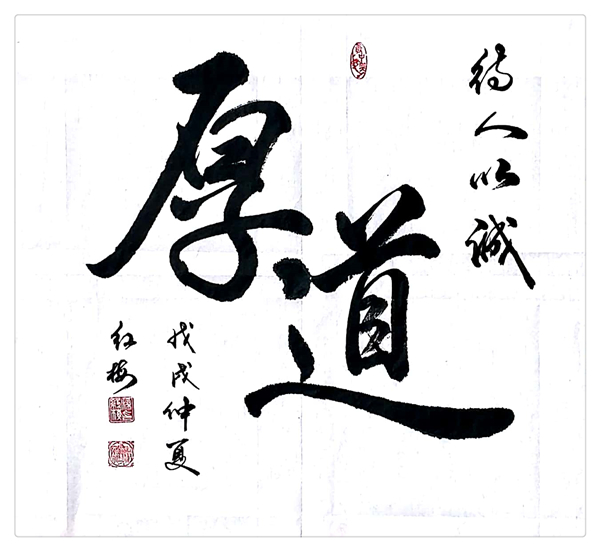 待人以诚
厚道
戊戌仲夏
红梅